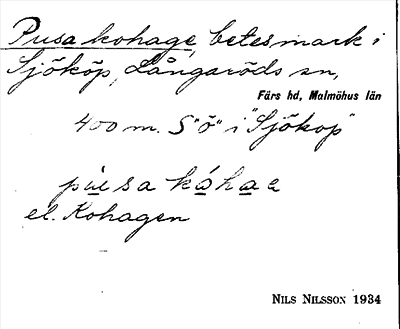 Pusa kohage, betesmark i
Sjököp, Långaröds sn,
Färs hd, Malmöhus län
400 m. S "ö" i "Sjököp"
pùsa kóhae
el. Kohagen
NILS NILSSON 1934